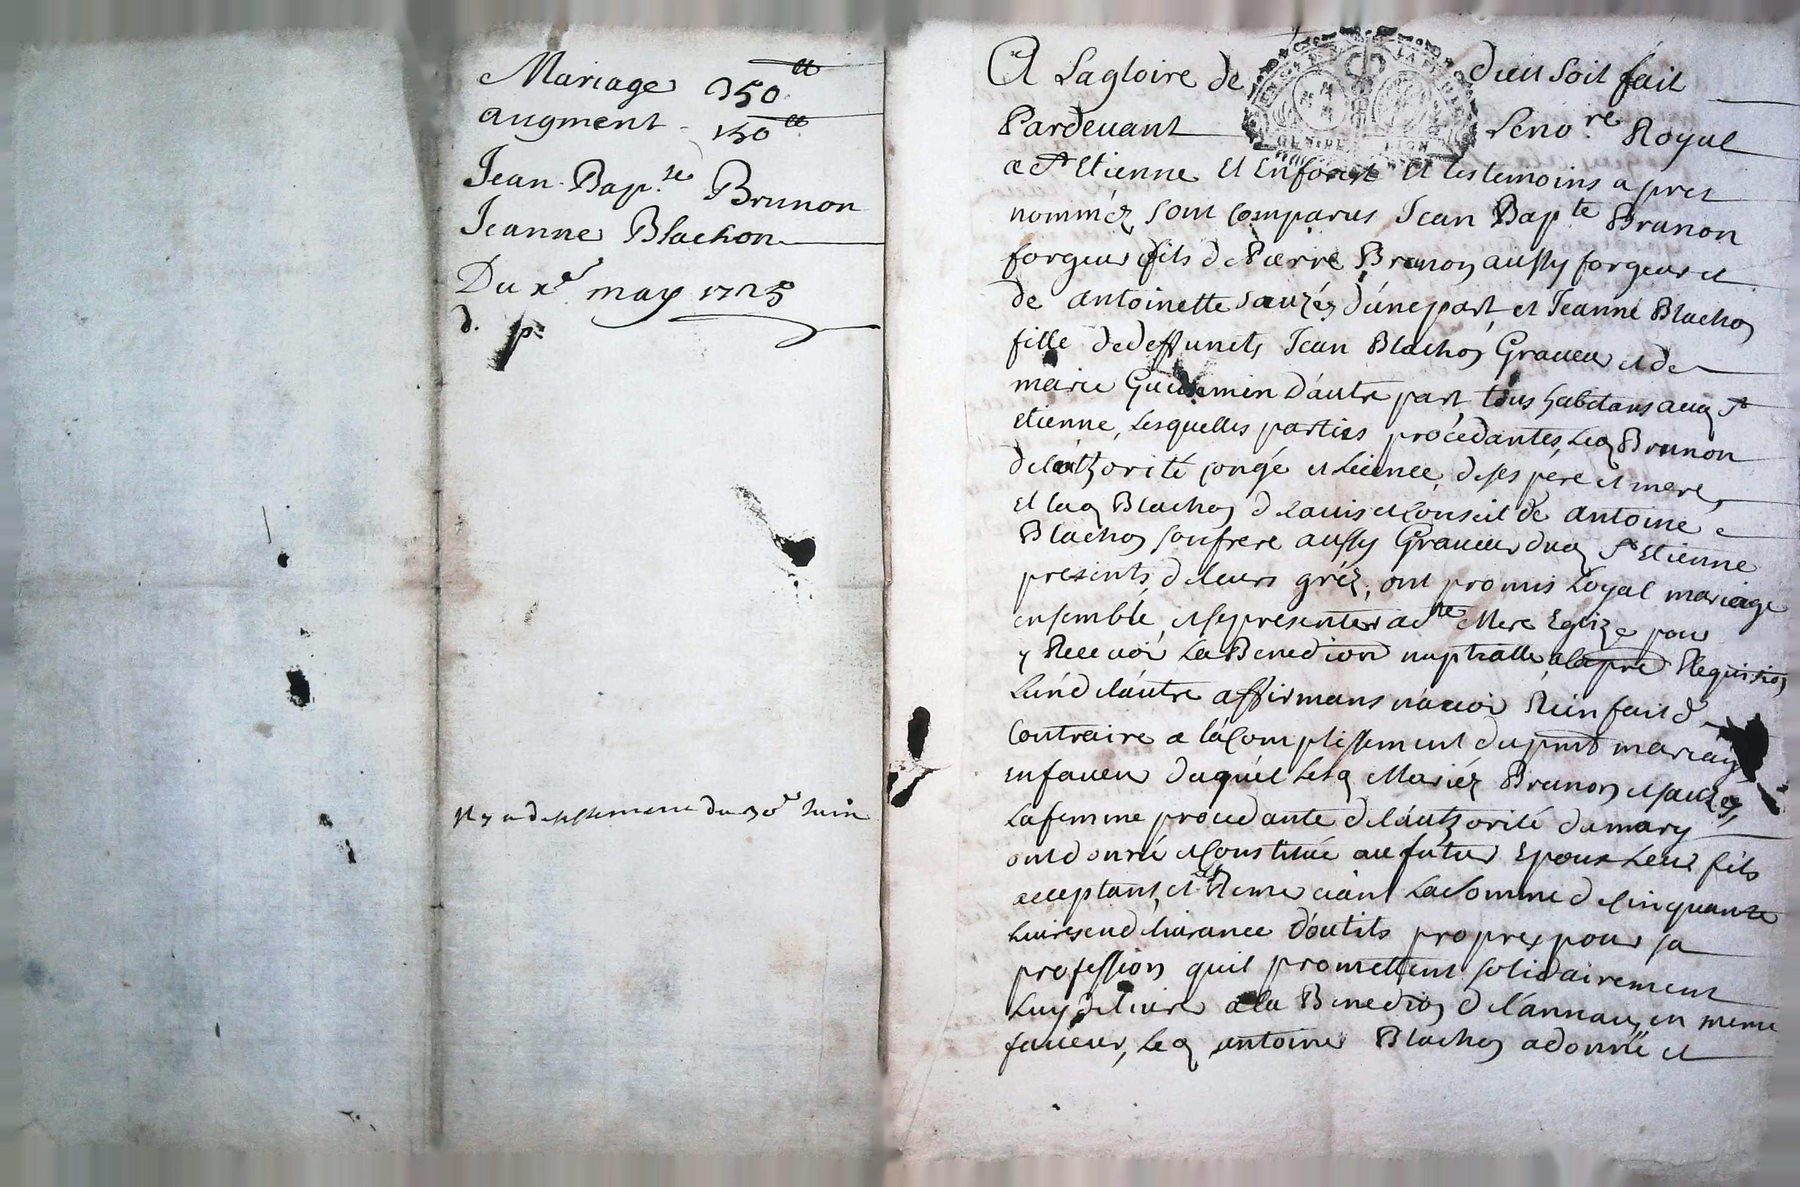 Mariage 350 ᵗᵗ
augment 150 ᵗᵗ
Jean Bap.te Brunon
Jeanne Blachon
Du xe may 1725
d. p.
du 30e Juin
A La gloire de dieu soit fait
Pardevant Le no.re Royal
a St Etienne Et en forest Et les temoins apres
nomméz sont comparus Jean Bapte Brunon
forgeur fils de Pierre Brunon aussy forgeur et
de antoinette sauzéz d'une part, et Jeanne Blachon
fille de deffuncts Jean Blachon Graveur et de
marie Guillemin D'autre part, tous habitans audt St
etienne, Lesquelles parties procedantes, Led Brunon
de l'authorité congé et licence de ses pere et mere,
et lad Blachon de l'avis et Conseil de antoine
Blachon son frere aussy Graveur dud St Etienne
presents, de leurs gréz, ont promis Loyal mariage
ensemble, et se presenter a nre Mere Eglize pour
y Recevoir La Benediction nuptialle, a la pre Requisition
L'un de l'autre affirmans n'avoir Rien fait de
Contraire a l'acomplissement du pnt mariage
en faveur duquel Lesd Mariéz Brunon et sauzéz,
La femme procedante de l'authorité du mary
ont donné et Constitué au futur Epoux Leur fils
acceptant, et Remerciant La somme de Cinquante
Livres en delivrance d'outils propres pour sa
profession quil promettent solidairement
Luy delivrer a la Benediction de l'anneau, en meme
faveur, Led antoine Blachon a donné et